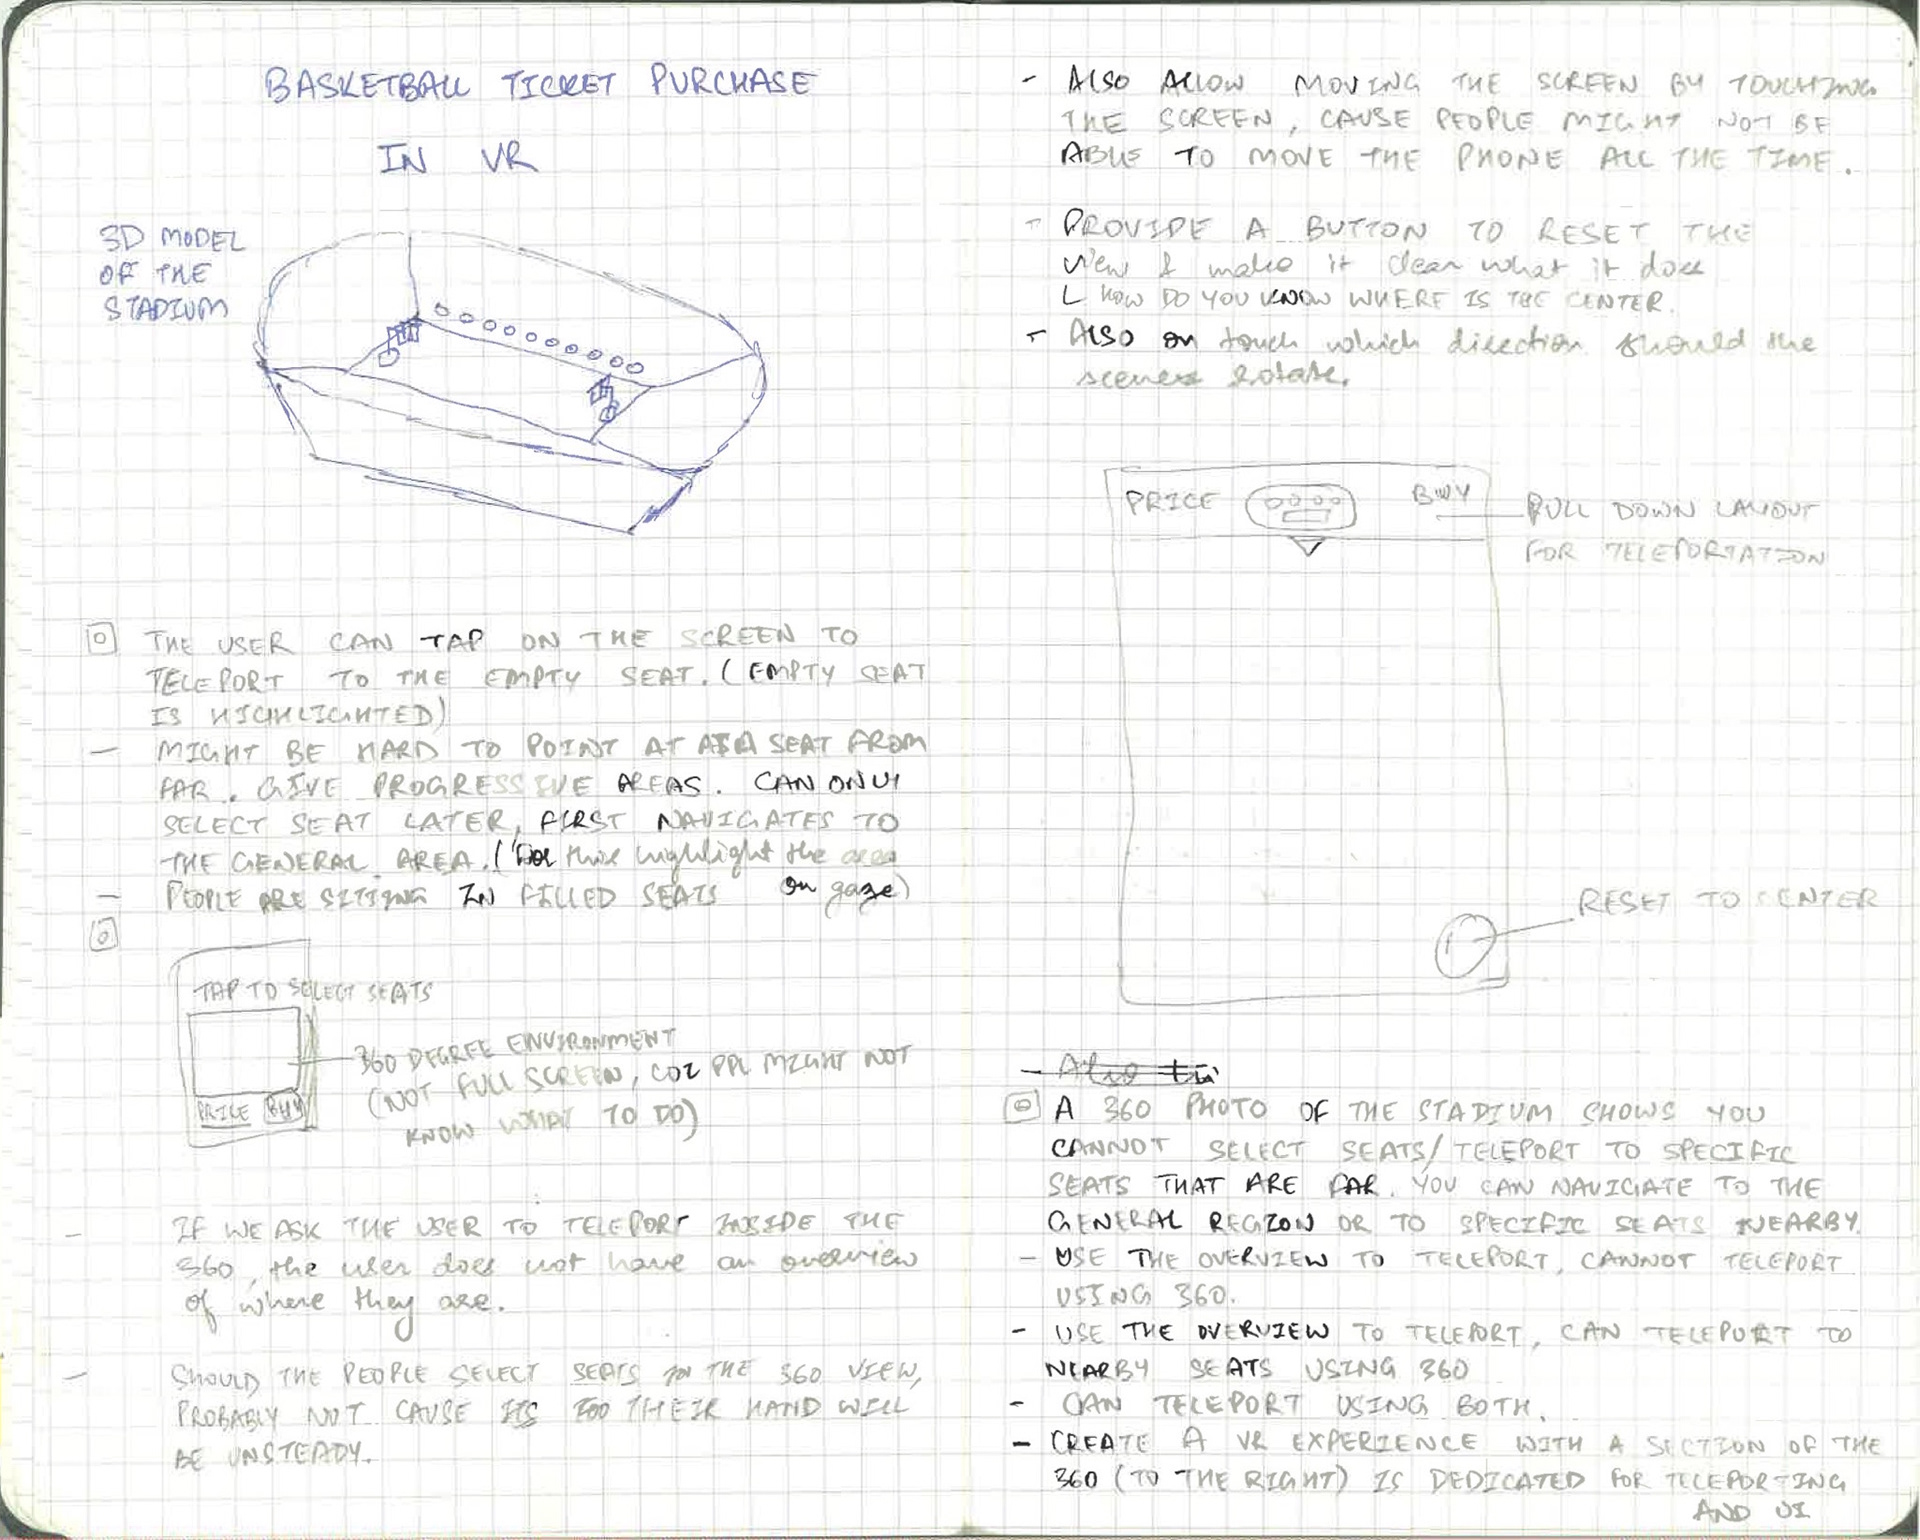 BASKETBALL TICKET PURCHASE
IN VR
3D MODEL
OF THE
STADIUM
THE USER CAN TAP ON THE SCREEN TO
TELEPORT TO THE EMPTY SEAT. (EMPTY SEAT
IS HIGHLIGHTED)
- MIGHT BE HARD TO POINT AT A SEAT FROM
FAR. GIVE PROGRESSIVE AREAS. CAN ONLY
SELECT SEAT LATER, FIRST NAVIGATES TO
THE GENERAL AREA. (For this highlight the area
on gaze)
- PEOPLE ARE SITTING IN FILLED SEATS
TAP TO SELECT SEATS
360 DEGREE ENVIRONMENT
(NOT FULL SCREEN, COZ PPL MIGHT NOT
KNOW WHAT TO DO)
PRICE BUY
- IF WE ASK THE USER TO TELEPORT INSIDE THE
360, the user does not have an overview
of where they are.
- SHOULD THE PEOPLE SELECT SEATS IN THE 360 VIEW,
PROBABLY NOT CAUSE ITS TOO THEIR HAND WILL
BE UNSTEADY.
- ALSO ALLOW MOVING THE SCREEN BY TOUCHING
THE SCREEN, CAUSE PEOPLE MIGHT NOT BE
ABLE TO MOVE THE PHONE ALL THE TIME.
- PROVIDE A BUTTON TO RESET THE
view & make it clear what it does
L HOW DO YOU KNOW WHERE IS THE CENTER.
- Also on touch which direction should the
scenes rotate.
PRICE BUY
PULL DOWN LAYOUT
FOR TELEPORTATION
RESET TO CENTER
- Also
A 360 PHOTO OF THE STADIUM SHOWS YOU
CANNOT SELECT SEATS/TELEPORT TO SPECIFIC
SEATS THAT ARE FAR. YOU CAN NAVIGATE TO THE
GENERAL REGION OR TO SPECIFIC SEATS NEARBY.
- USE THE OVERVIEW TO TELEPORT, CANNOT TELEPORT
USING 360.
- USE THE OVERVIEW TO TELEPORT, CAN TELEPORT TO
NEARBY SEATS USING 360
- CAN TELEPORT USING BOTH.
- CREATE A VR EXPERIENCE WITH A SECTION OF THE
360 (TO THE RIGHT) IS DEDICATED FOR TELEPORTING
AND UI